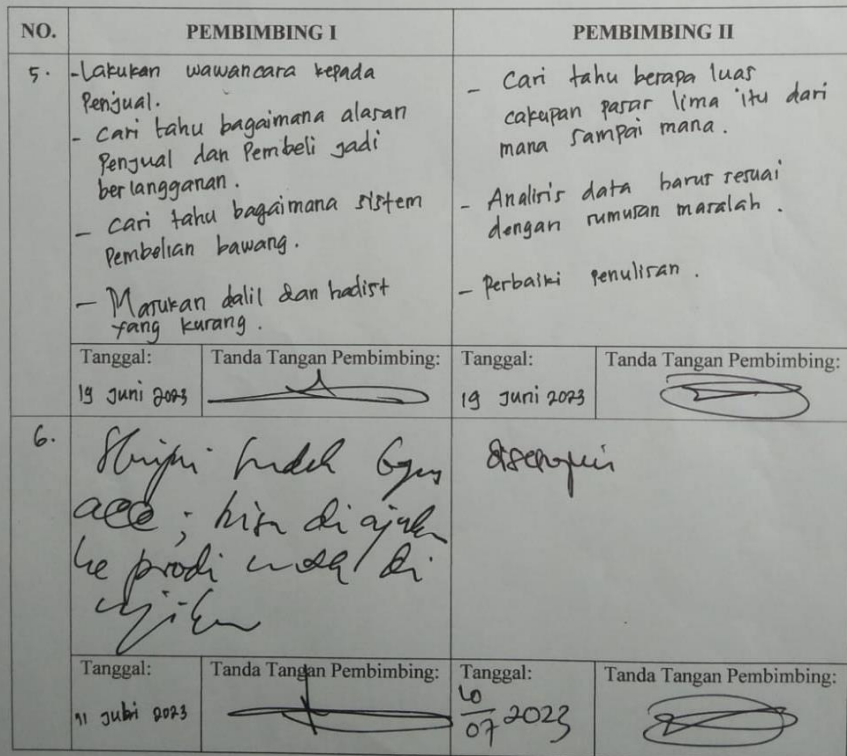 NO. PEMBIMBING I PEMBIMBING II
5.
- Lakukan wawancara kepada
Penjual.
- Cari tahu bagaimana alasan
Penjual dan Pembeli jadi
berlangganan.
- Cari tahu bagaimana sistem
Pembelian bawang.
- Masukan dalil dan hadist
yang kurang.
- Cari tahu berapa luas
cakupan pasar lima itu dari
mana sampai mana.
- Analisis data harus sesuai
dengan rumusan masalah.
- Perbaiki penulisan.
Tanggal: Tanda Tangan Pembimbing: Tanggal: Tanda Tangan Pembimbing:
19 Juni 2023 19 Juni 2023
6.
Skripsi sudah bagus
acc; bisa diajukan
ke prodi untuk di
ujikan
disetujui
Tanggal: Tanda Tangan Pembimbing: Tanggal: Tanda Tangan Pembimbing:
2023 10/07 2023